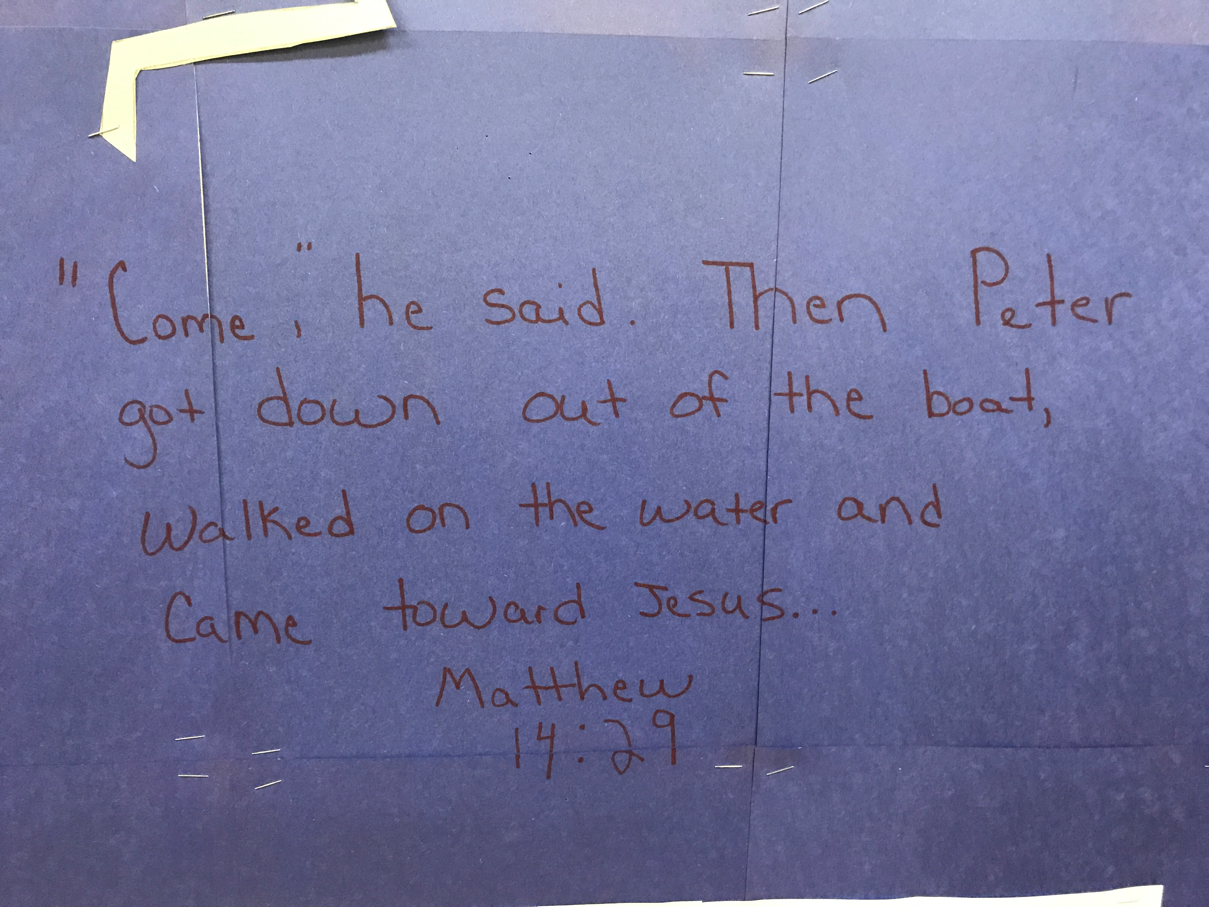 "Come," he said. Then Peter
got down out of the boat,
walked on the water and
Came toward Jesus...
Matthew
14:29